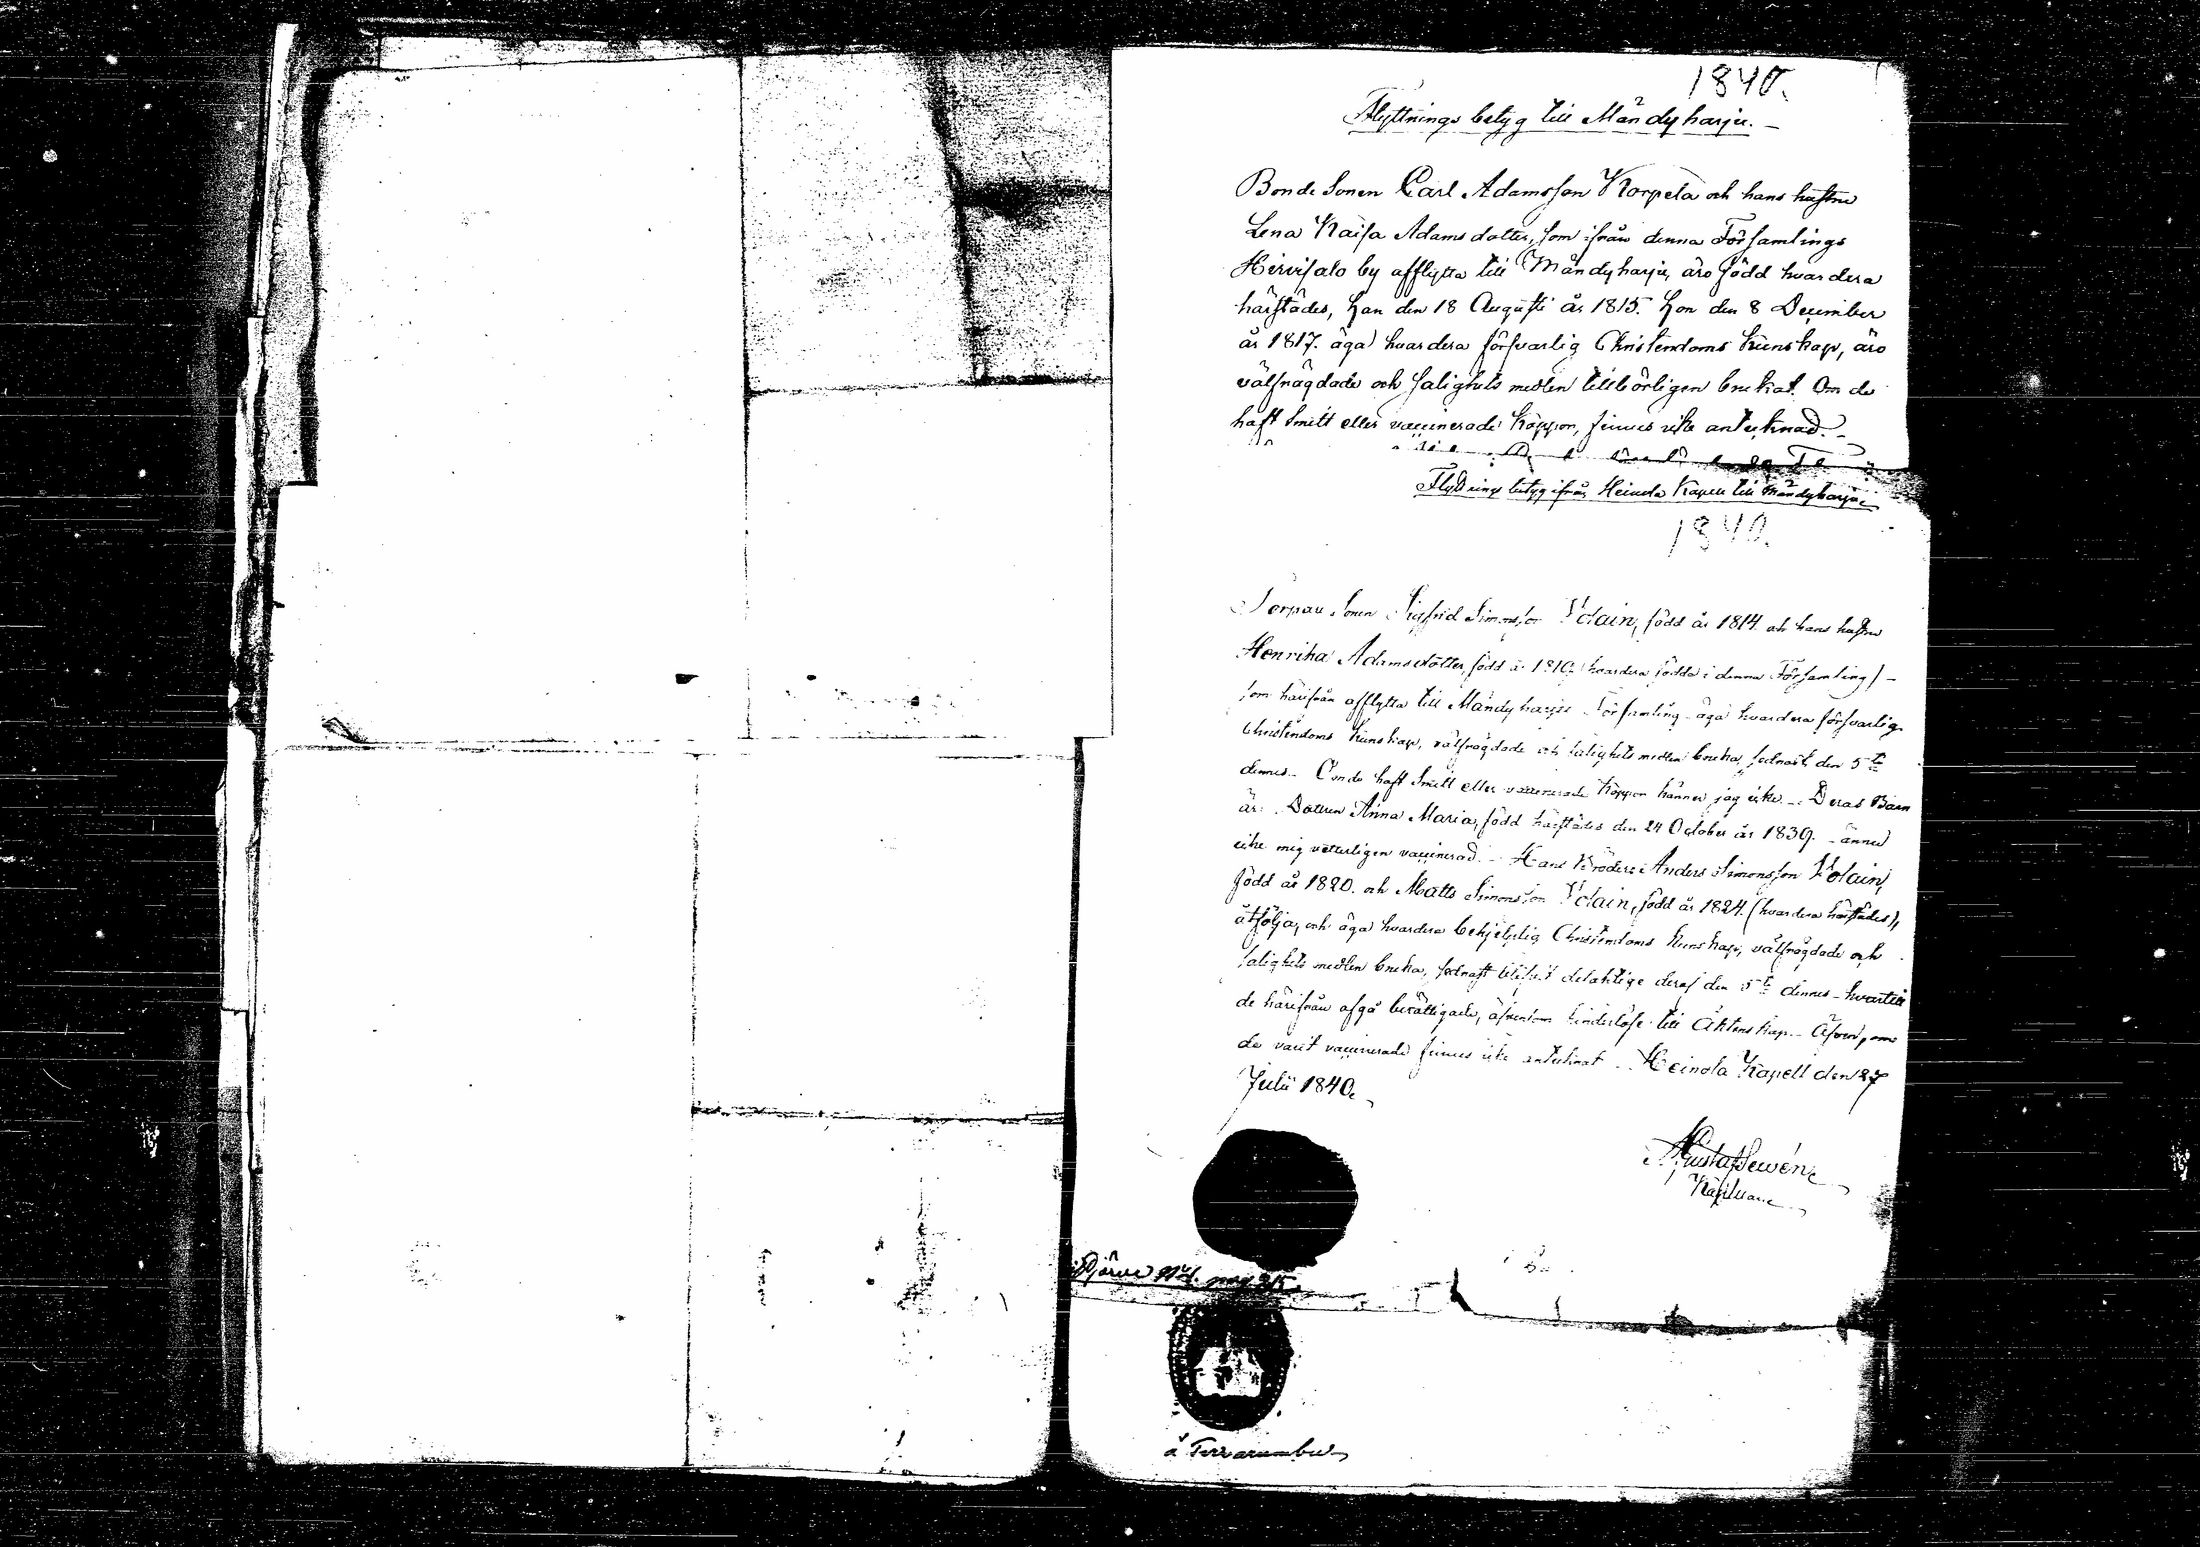 1840.
Flyttnings betyg till Mändyharju.
Bonde Sonen Carl Adamsson Korpela och hans hustru
Lena Kaisa Adamsdotter, som ifrån denna Församlings
Hirvisalo by afflytta till Mändyharju, äro född hvardera
härstädes, han den 18 Augusti år 1815. hon den 8 December
år 1817. äga hvardera försvarlig Christendoms kunskap, äro
välfrägdade och salighets medlen tillbörligen brukat. Om de
haft Smitt eller vaccinerade koppor, finnes icke antecknad.
Flyttnings betyg ifrån Heinola Kapell till Mändyharju
1840.
Torpare Sonen Sigfrid Simonsson Volain, född år 1814. och hans hustru
Henrika Adamsdotter, född år 1810. (hvardera födda i denna Församling) -
som härifrån afflytta till Mändyharju Församling - äga hvardera försvarlig
Christendoms kunskap, välfrägdade och salighets medlen bruka, sednast den 5te
dennes. - Om de haft Smitt eller vaccinerade koppor känner jag icke. - Deras Barn
är: Dottren Anna Maria, född härstädes den 24 October år 1839. - ännu
icke mig vetterligen vaccinerad. - Hans Bröder: Anders Simonsson Volain,
född år 1820. och Matts Simonsson Volain, född år 1824. (hvardera härstädes),
åtfölja, och äga hvardera behjelplig Christendoms kunskap, välfrägdade och
salighets medlen bruka, sednast delaktige deraf den 5te dennes - hvartill
de härifrån afgå berättigade, äfvensom hinderlöse till Äktenskap. - Äfven, om
de varit vaccinerade finnes icke antecknat. Heinola Kapell den 27
Julii 1840.
Gustaf
Kapellan
å Terrarumbus